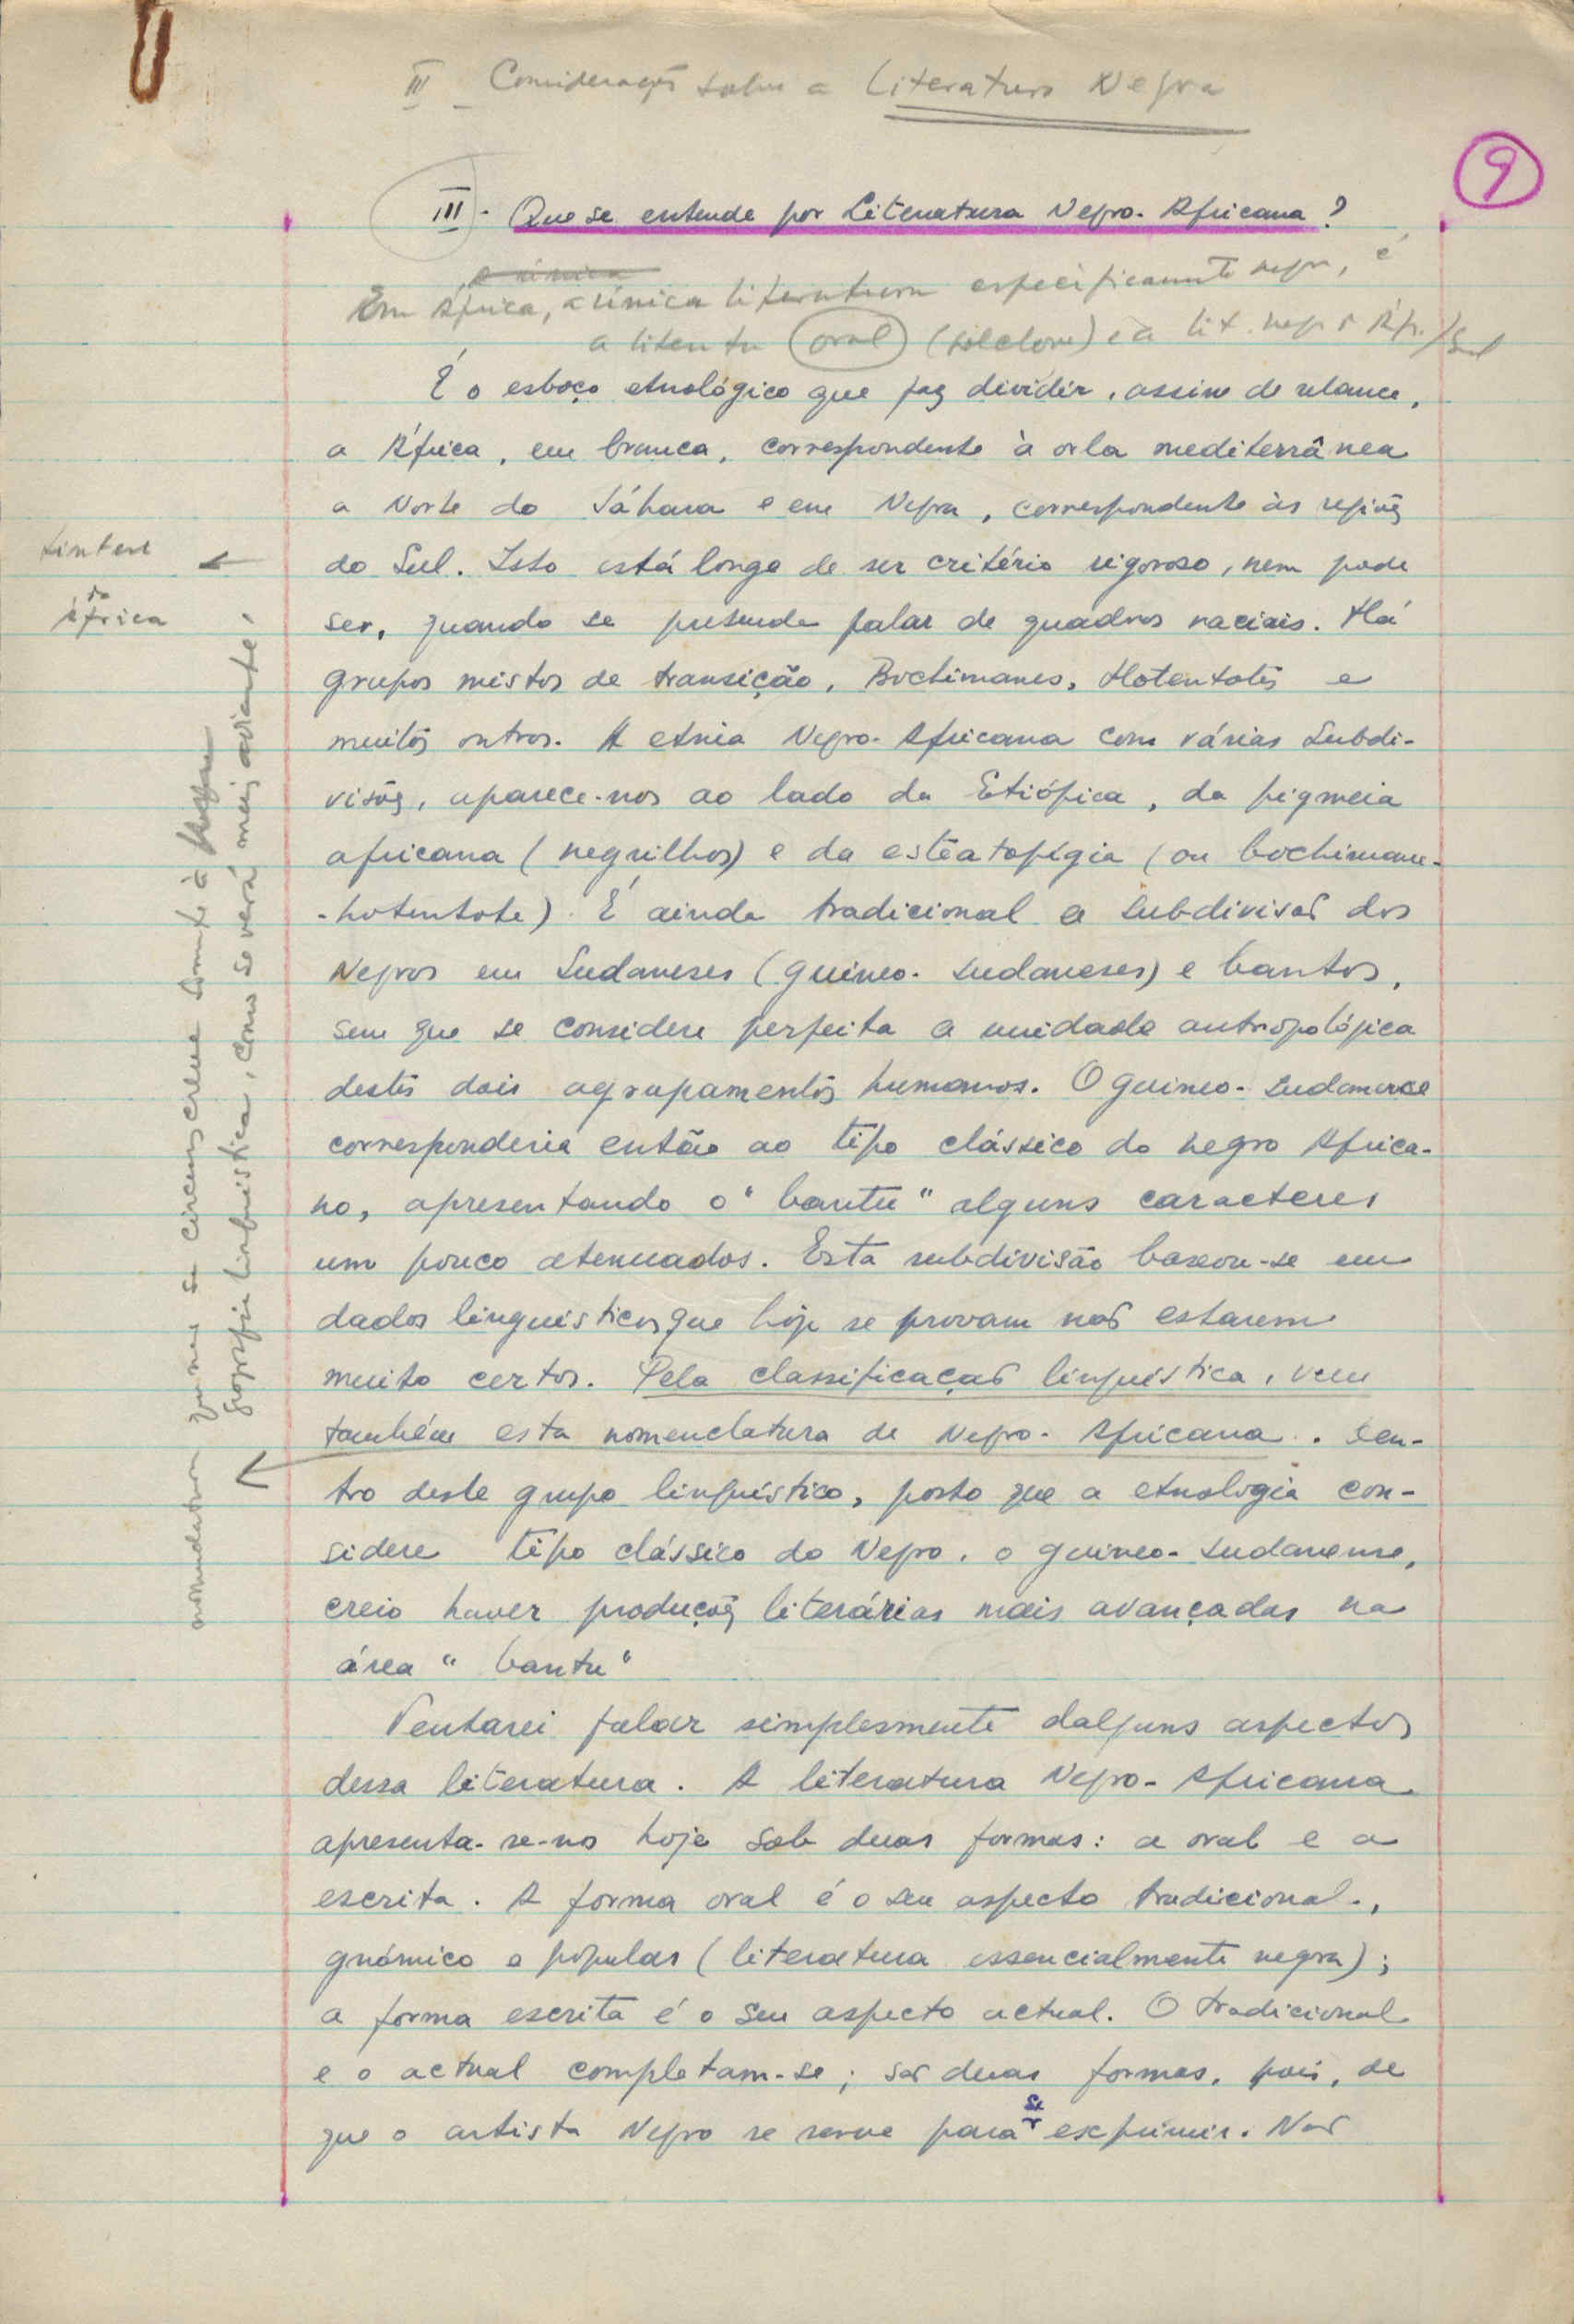 III – Considerações sobre a Literatura Negra
9
III - Que se entende por Literatura Negro-Africana?
a única
Em África, a única literatura especificamente negra, é
a literatu oral (folclore) e a lit. negra Áfr. / Sul
É o esboço etnológico que faz dividir, assim de relance,
a África, em branca, correspondente à orla mediterrânea
a Norte do Sáhara e em Negra, correspondente às regiões
do Sul. Isto está longe de ser critério rigoroso, nem pode
ser, quando se pretende falar de quadros raciais. Há
grupos mistos de transição, Bochimanes, Hotentotes e
muitos outros. A etnia Negro-Africana com várias Subdi-
visões, aparece-nos ao lado da Etiópica, da pigmeia
africana (negrilhos) e da esteatopígia (ou bochimane-
-hotentote). É ainda tradicional a subdivisão dos
Negros em Sudaneses (guineo-sudaneses) e bantos,
sem que se considere perfeita a unidade antropológica
destes dois agrupamentos humanos. O guineo-sudanense
corresponderia então ao tipo clássico do negro Africa-
no, apresentando o "bantu" alguns caracteres
um pouco atenuados. Esta subdivisão baseou-se em
dados linguísticos que hoje se provam não estarem
muito certos. Pela classificação linguística, vem
também esta nomenclatura de Negro-Africana. Den-
tro deste grupo linguístico, posto que a etnologia con-
sidere tipo clássico do Negro, o guineo-sudanense,
creio haver produções literárias mais avançadas na
área "bantu"
Tentarei falar simplesmente dalguns aspectos
dessa literatura. A literatura Negro-Africana
apresenta-se-no hoje sob duas formas: a oral e a
escrita. A forma oral é o seu aspecto tradicional,
gnómico e popular (literatura essencialmente negra);
a forma escrita é o seu aspecto actual. O tradicional
e o actual completam-se; são duas formas, pois, de
que o artista Negro se serve para se exprimir. Não
da
África
nomenclatura que não se circunscreve somente à
geografia linguística, como se verá mais adiante.